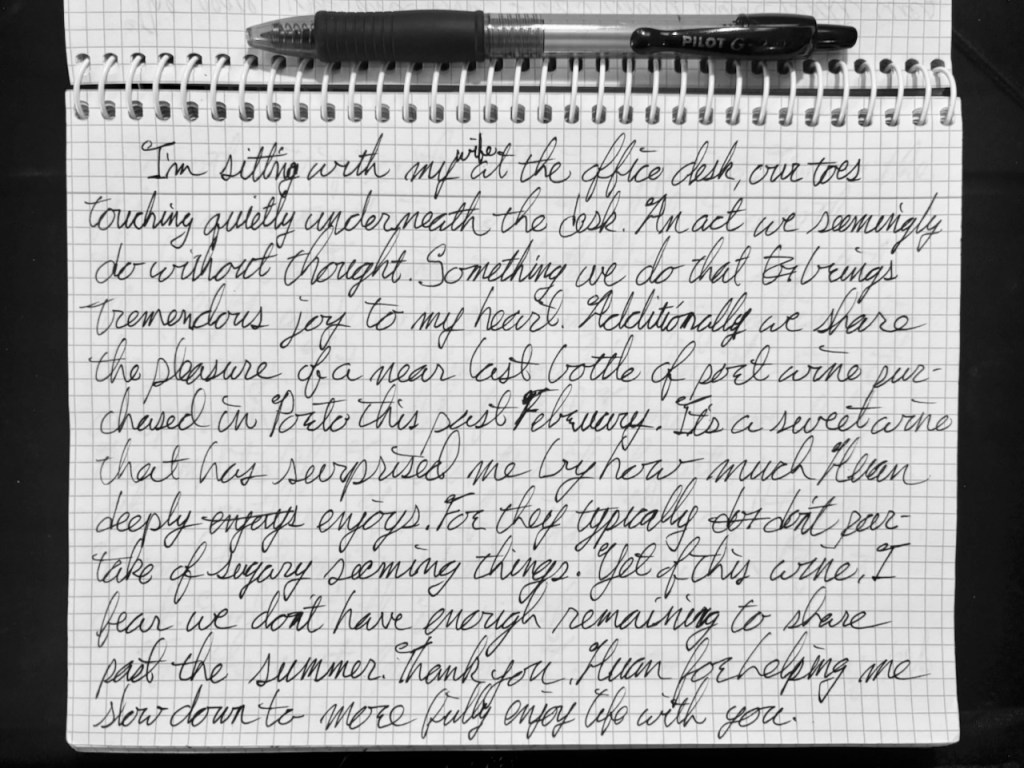 PILOT G
I'm sitting with my wife at the office desk, our toes
touching quietly underneath the desk. An act we seemingly
do without thought. Something we do that brings
tremendous joy to my heart. Additionally we share
the pleasure of a near last bottle of port wine pur-
chased in Porto this past February. It's a sweet wine
that has surprised me by how much Huan
deeply enjoys enjoys. For they typically don't par-
take of sugary seeming things. Yet of this wine, I
fear we don't have enough remaining to share
past the summer. Thank you, Huan for helping me
slow down to more fully enjoy life with you.